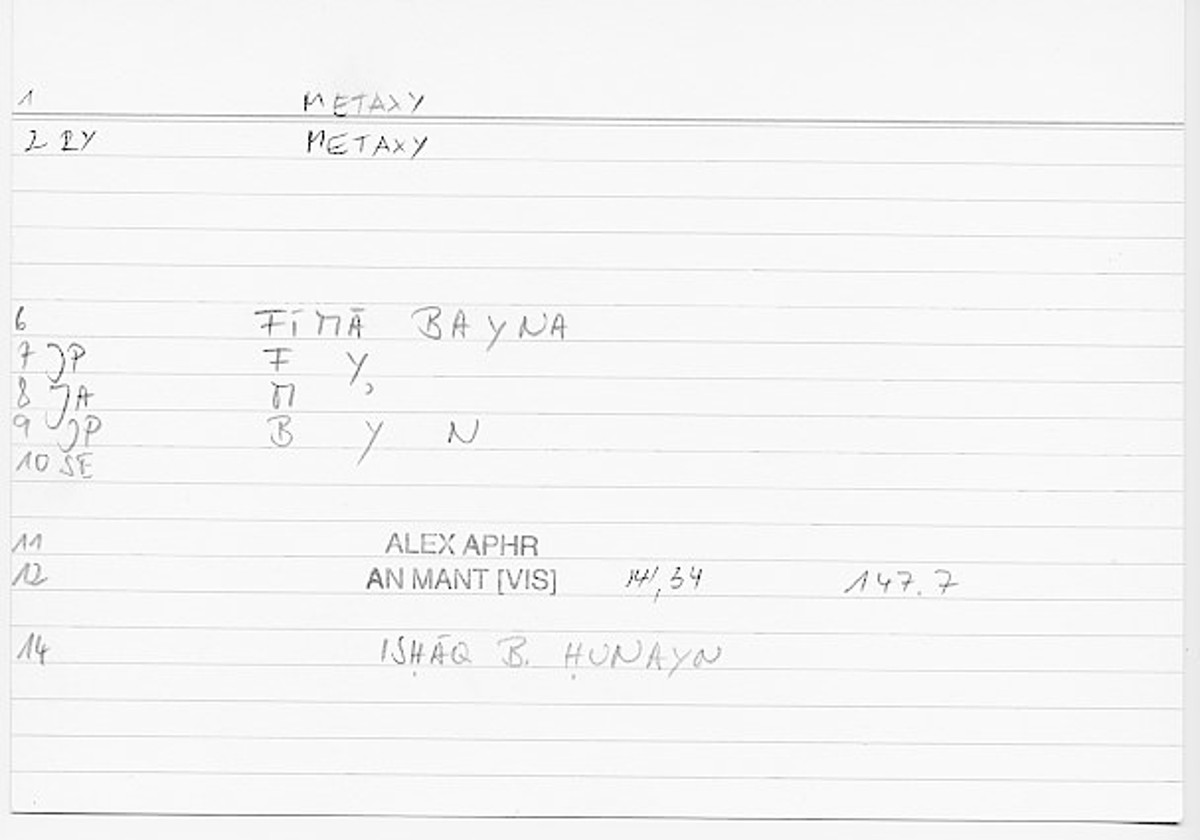 1 METAXY
2 PY METAXY
6 FĪMĀ BAYNA
7 JP F Y,
8 JA M
9 JP B Y N
10 SE
11 ALEX APHR
12 AN MANT [VIS] 141,34 147.7
14 ISḤĀQ B. ḤUNAYN